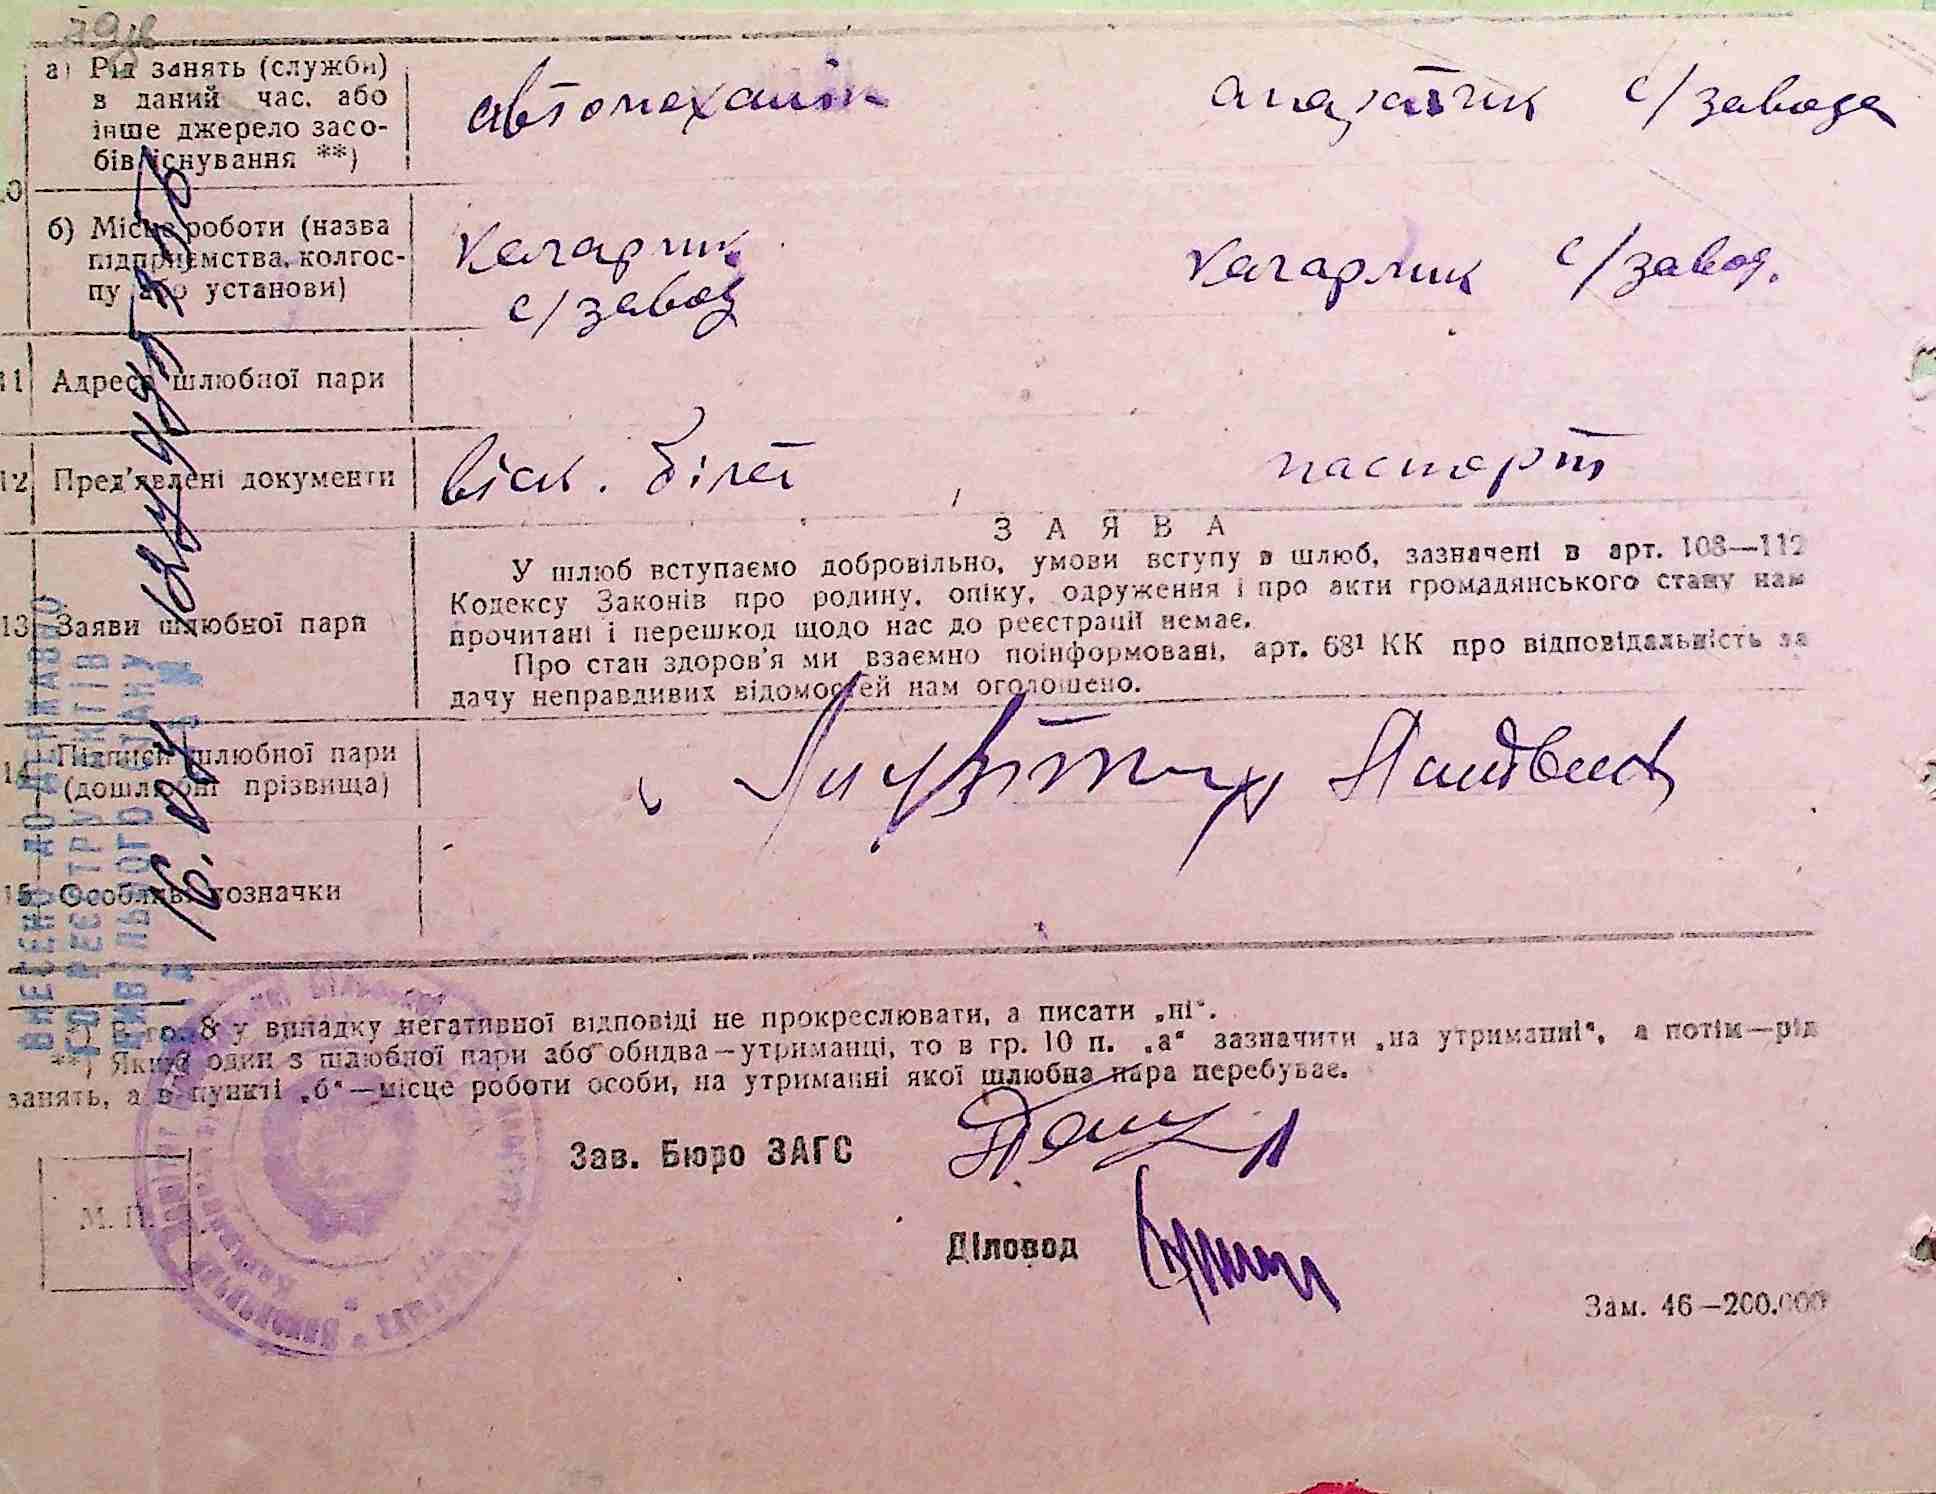 а) Рід занять (служби)
в даний час, або
інше джерело засо-
бів існування **)
автомеханік
апаратчик с/завода
б) Місце роботи (назва
підприємства, колгос-
пу або установи)
Кагарлик
с/завод
Кагарлик с/завод.
11 Адреса шлюбної пари
12 Пред'явлені документи
війск. білет
паспорт
ЗАЯВА
13 Заяви шлюбної пари
У шлюб вступаємо добровільно, умови вступу в шлюб, зазначені в арт. 108—112
Кодексу Законів про родину, опіку, одруження і про акти громадянського стану нам
прочитані і перешкод щодо нас до реєстрації немає.
Про стан здоров'я ми взаємно поінформовані, арт. 68¹ КК про відповідальність за
дачу неправдивих відомостей нам оголошено.
14 Підписи шлюбної пари
(дошлюбні прізвища)
15 Особливі позначки
*) В гр. 8 у випадку негативної відповіді не прокреслювати, а писати „ні“.
**) Якщо один з шлюбної пари або обидва—утриманці, то в гр. 10 п. „а“ зазначити „на утриманні“, а потім—рід
занять, а в пункті „б“—місце роботи особи, на утриманні якої шлюбна пара перебуває.
Зав. Бюро ЗАГС
М. П.
Діловод
Зам. 46—200.000
ВНЕСЕНО ДО ДЕРЖАВНО
ГО РЕЄСТРУ АКТІВ
ЦИВІЛЬНОГО СТАНУ